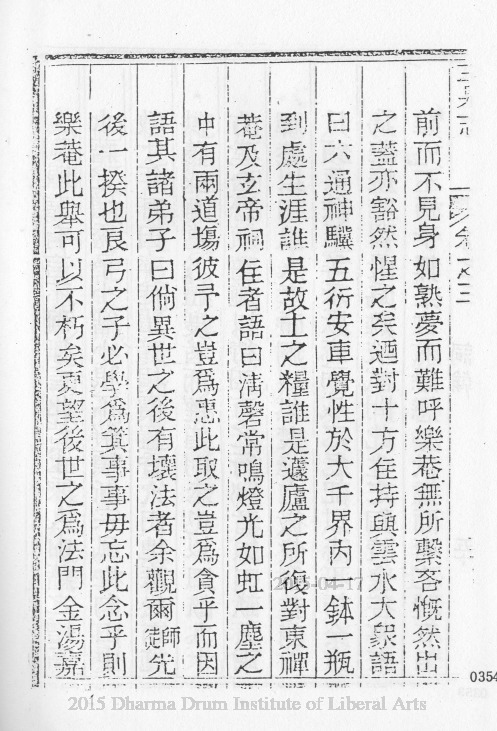 前而不見身如熟夢而難呼樂菴無所繫吝慨然出
之蓋亦豁然惺之矣迺對十方住持與雲水大眾語
曰六通神驥五衍安車覺性於大千界內一鉢一瓶
到處生涯誰是故士之糧誰是蘧廬之所復對東禪
菴及玄帝祠住者語曰清磬常鳴燈光如虹一塵之
中有兩道塲彼予之豈爲惠此取之豈爲貪乎而因
語其諸弟子曰倘異世之後有壞法者余觀爾師先
後一揆也良弓之子必學爲箕事事毋忘此念乎則
樂菴此舉可以不朽矣更望後世之爲法門金湯嘉
0354
2015 Dharma Drum Institute of Liberal Arts